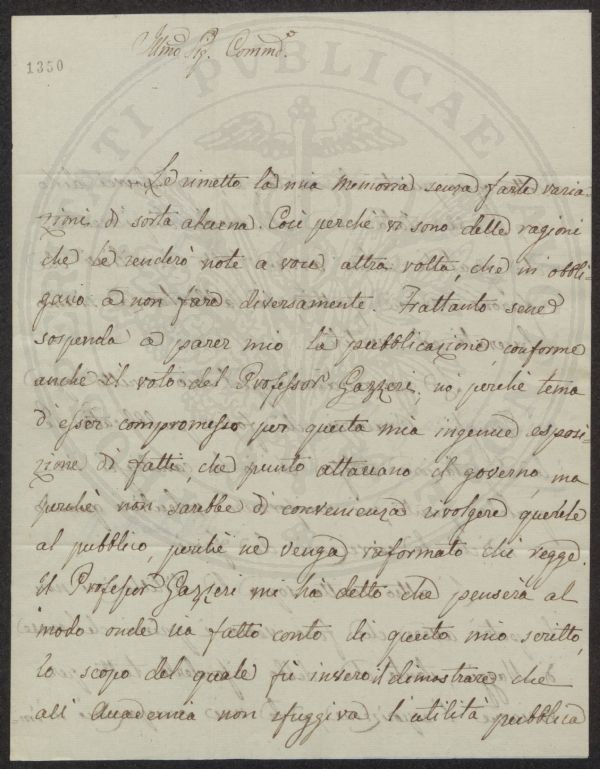 Illmo Sig. Commo.
1350
TI PVBLICAE
Le rimetto la mia memoria senza farle varia-
zioni di sorta alcuna. Così perchè vi sono delle ragioni
che le renderò note a voce altra volta, che m'obbli-
gano a non fare diversamente. Frattanto sene
sospenda a parer mio la pubblicazione, conforme
anche il voto del Professor Gazzeri; nò perchè tema
d'esser compromesso per questa mia ingenua esposi-
zione di fatti, che punto attaccano il governo, ma
perchè non sarebbe di convenienza rivolgere querele
al pubblico, perchè ne venga informato chi regge.
Il Professor Gazzeri mi ha detto che penserà al
modo onde sia fatto conto di questo mio scritto,
lo scopo del quale fù invero il dimostrare che
all'Accademia non sfuggiva l'utilità pubblica